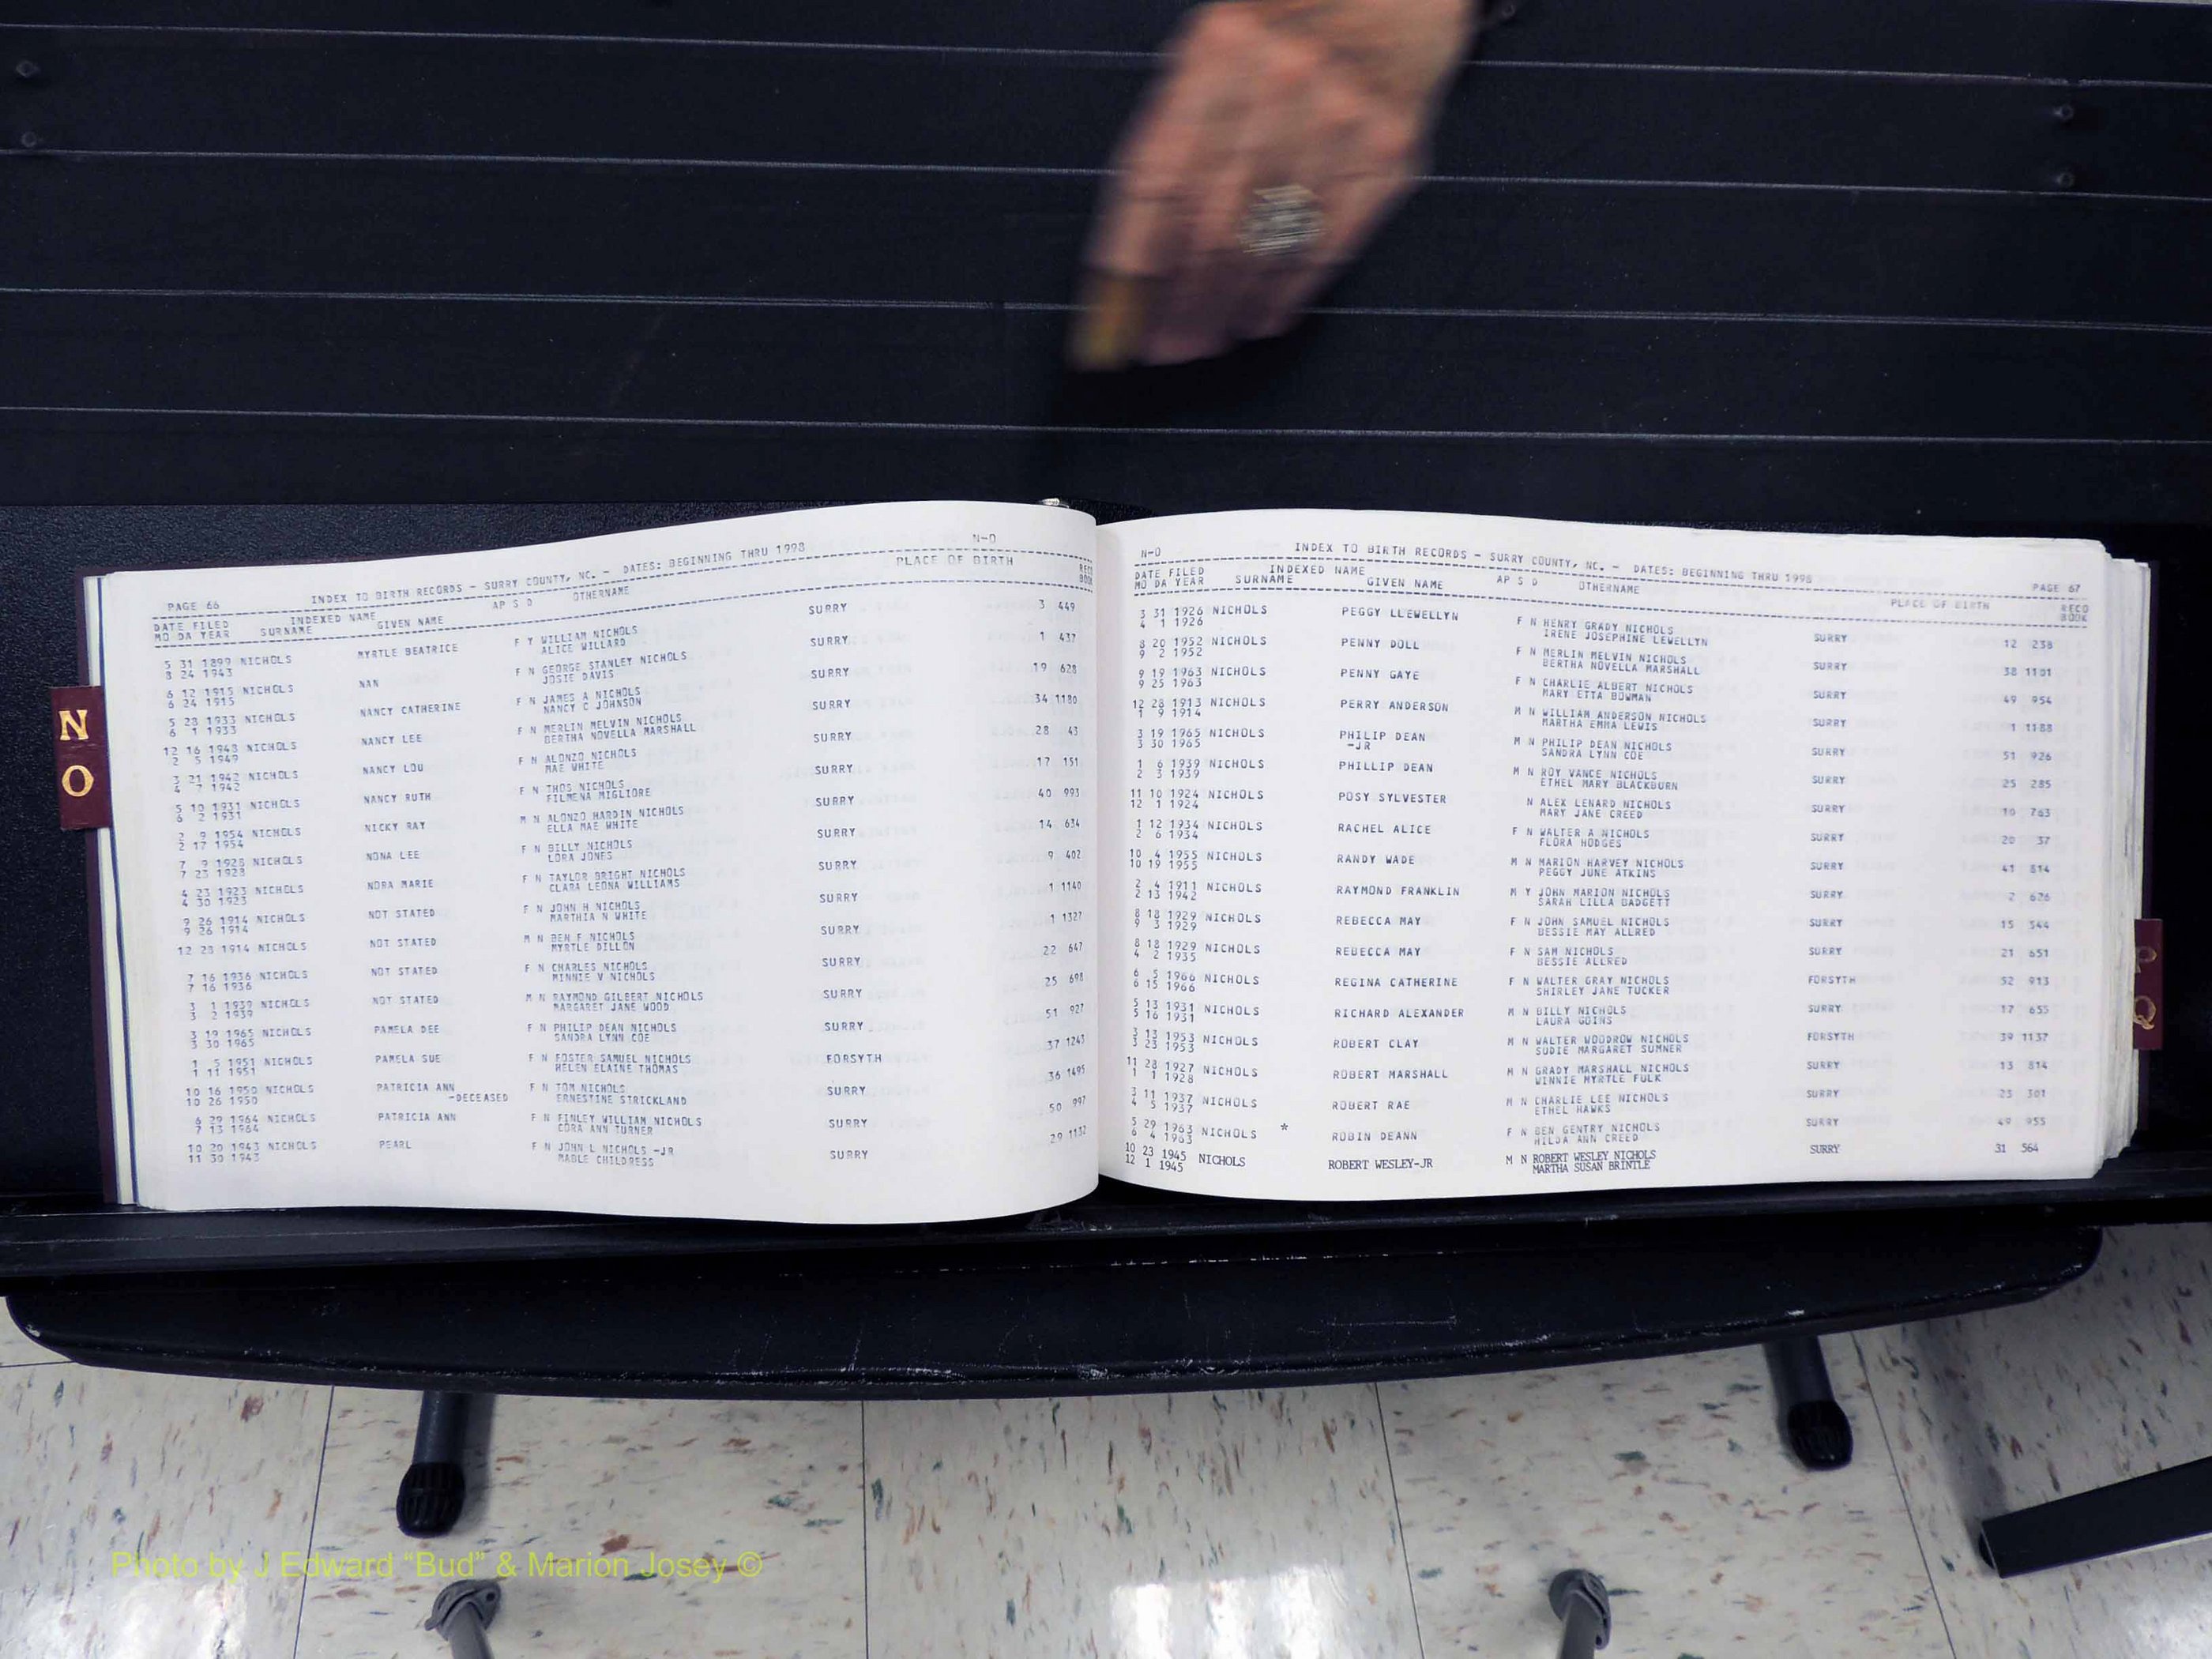 N-O
PAGE 66 INDEX TO BIRTH RECORDS - SURRY COUNTY, NC. - DATES: BEGINNING THRU 1998
DATE FILED INDEXED NAME AP S D OTHERNAME PLACE OF BIRTH
MO DA YEAR SURNAME GIVEN NAME BOOK
5 31 1899 NICHOLS MYRTLE BEATRICE F Y WILLIAM NICHOLS SURRY 3 449
8 24 1943 ALICE WILLARD
6 12 1915 NICHOLS NAN F N GEORGE STANLEY NICHOLS SURRY 1 437
6 24 1915 JOSIE DAVIS
5 28 1933 NICHOLS NANCY CATHERINE F N JAMES A NICHOLS SURRY 19 628
6 1 1933 NANCY C JOHNSON
12 16 1948 NICHOLS NANCY LEE F N MERLIN MELVIN NICHOLS SURRY 34 1180
2 5 1949 BERTHA NOVELLA MARSHALL
3 21 1942 NICHOLS NANCY LOU F N ALONZO NICHOLS SURRY 28 43
4 7 1942 MAE WHITE
5 10 1931 NICHOLS NANCY RUTH F N THOS NICHOLS SURRY 17 151
6 2 1931 FILMENA MIGLIORE
2 9 1954 NICHOLS NICKY RAY M N ALONZO HARDIN NICHOLS SURRY 40 993
2 17 1954 ELLA MAE WHITE
7 9 1928 NICHOLS NONA LEE F N BILLY NICHOLS SURRY 14 634
7 23 1928 LORA JONES
4 23 1923 NICHOLS NORA MARIE F N TAYLOR BRIGHT NICHOLS SURRY 9 402
4 30 1923 CLARA LEONA WILLIAMS
9 26 1914 NICHOLS NOT STATED F N JOHN H NICHOLS SURRY 1 1140
9 26 1914 MARTHIA N WHITE
12 23 1914 NICHOLS NOT STATED M N BEN F NICHOLS SURRY 1 1327
MYRTLE DILLON
7 16 1936 NICHOLS NOT STATED F N CHARLES NICHOLS SURRY 22 647
7 16 1936 MINNIE V NICHOLS
3 1 1939 NICHOLS NOT STATED M N RAYMOND GILBERT NICHOLS SURRY 25 698
3 2 1939 MARGARET JANE WOOD
3 19 1965 NICHOLS PAMELA DEE F N PHILIP DEAN NICHOLS SURRY 51 927
3 30 1965 SANDRA LYNN COE
1 5 1951 NICHOLS PAMELA SUE F N FOSTER SAMUEL NICHOLS FORSYTH 37 1243
1 11 1951 HELEN ELAINE THOMAS
10 16 1950 NICHOLS PATRICIA ANN F N TOM NICHOLS SURRY 36 1495
10 26 1950 -DECEASED ERNESTINE STRICKLAND
6 29 1964 NICHOLS PATRICIA ANN F N FINLEY WILLIAM NICHOLS SURRY 50 997
7 13 1964 CORA ANN TURNER
10 20 1943 NICHOLS PEARL F N JOHN L NICHOLS -JR SURRY 29 1132
11 30 1943 MABLE CHILDRESS
N-O INDEX TO BIRTH RECORDS - SURRY COUNTY, NC. - DATES: BEGINNING THRU 1998 PAGE 67
DATE FILED INDEXED NAME AP S D OTHERNAME PLACE OF BIRTH RECO
MO DA YEAR SURNAME GIVEN NAME BOOK
3 31 1926 NICHOLS PEGGY LLEWELLYN F N HENRY GRADY NICHOLS SURRY 12 238
4 1 1926 IRENE JOSEPHINE LEWELLYN
8 20 1952 NICHOLS PENNY DOLL F N MERLIN MELVIN NICHOLS SURRY 38 1101
9 2 1952 BERTHA NOVELLA MARSHALL
9 19 1963 NICHOLS PENNY GAYE F N CHARLIE ALBERT NICHOLS SURRY 49 954
9 25 1963 MARY ETTA BOWMAN
12 28 1913 NICHOLS PERRY ANDERSON M N WILLIAM ANDERSON NICHOLS SURRY 1 1188
1 9 1914 MARTHA EMMA LEWIS
3 19 1965 NICHOLS PHILIP DEAN M N PHILIP DEAN NICHOLS SURRY 51 926
3 30 1965 -JR SANDRA LYNN COE
1 6 1939 NICHOLS PHILLIP DEAN M N ROY VANCE NICHOLS SURRY 25 285
2 3 1939 ETHEL MARY BLACKBURN
11 10 1924 NICHOLS POSY SYLVESTER N ALEX LENARD NICHOLS SURRY 10 763
12 1 1924 MARY JANE CREED
1 12 1934 NICHOLS RACHEL ALICE F N WALTER A NICHOLS SURRY 20 37
2 6 1934 FLORA HODGES
10 4 1955 NICHOLS RANDY WADE M N MARION HARVEY NICHOLS SURRY 41 814
10 19 1955 PEGGY JUNE ATKINS
2 4 1911 NICHOLS RAYMOND FRANKLIN M Y JOHN MARION NICHOLS SURRY 2 626
2 13 1942 SARAH LILLA BADGETT
8 18 1929 NICHOLS REBECCA MAY F N JOHN SAMUEL NICHOLS SURRY 15 544
9 3 1929 BESSIE MAY ALLRED
8 18 1929 NICHOLS REBECCA MAY F N SAM NICHOLS SURRY 21 651
4 2 1935 BESSIE ALLRED
6 5 1966 NICHOLS REGINA CATHERINE F N WALTER GRAY NICHOLS FORSYTH 52 913
6 15 1966 SHIRLEY JANE TUCKER
5 13 1931 NICHOLS RICHARD ALEXANDER M N BILLY NICHOLS SURRY 17 655
5 16 1931 LAURA GOINS
3 13 1953 NICHOLS ROBERT CLAY M N WALTER WOODROW NICHOLS FORSYTH 39 1137
3 23 1953 SUDIE MARGARET SUMNER
11 28 1927 NICHOLS ROBERT MARSHALL M N GRADY MARSHALL NICHOLS SURRY 13 814
1 1 1928 WINNIE MYRTLE FULK
3 11 1937 NICHOLS ROBERT RAE M N CHARLIE LEE NICHOLS SURRY 23 301
4 5 1937 ETHEL HAWKS
5 29 1963 NICHOLS * ROBIN DEANN F N BEN GENTRY NICHOLS SURRY 49 955
6 4 1963 HILDA ANN CREED
10 23 1945 NICHOLS ROBERT WESLEY-JR M N ROBERT WESLEY NICHOLS SURRY 31 564
12 1 1945 MARTHA SUSAN BRINTLE
N
O
Q
Photo by J Edward “Bud” & Marion Josey ©